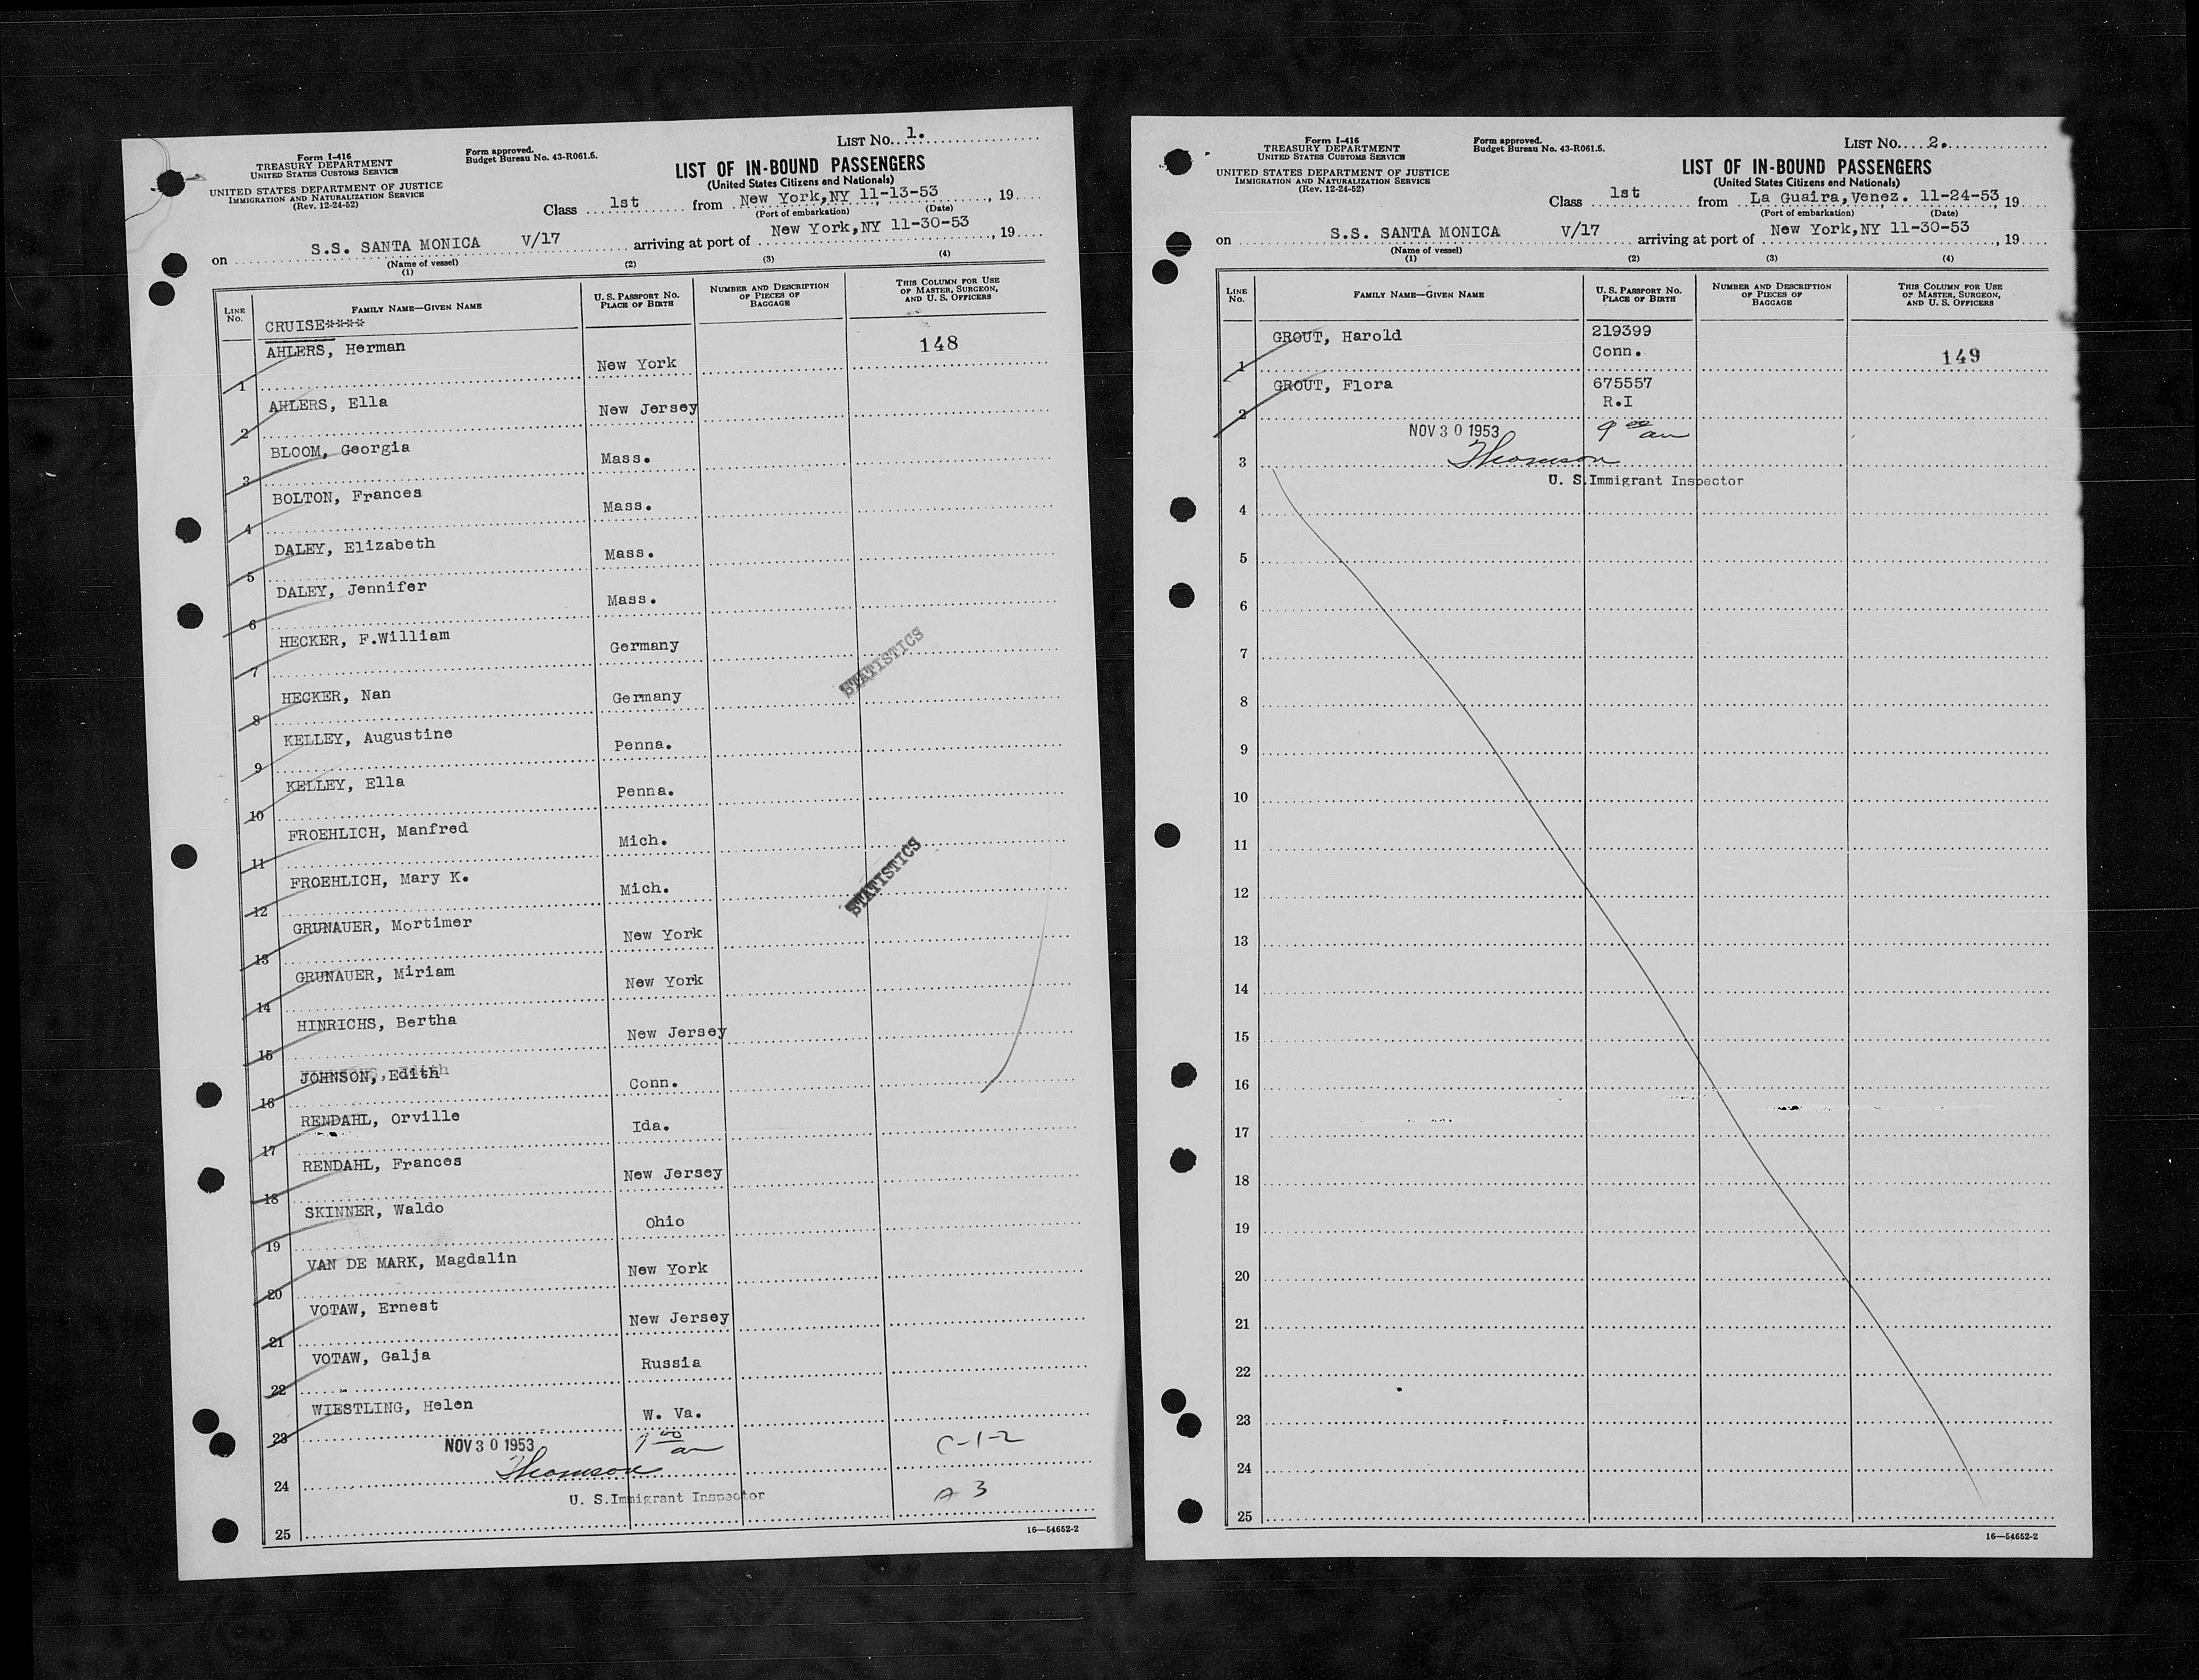 LIST NO. 1.
Form I-416
TREASURY DEPARTMENT
UNITED STATES CUSTOMS SERVICE
Form approved.
Budget Bureau No. 43-R061.5.
UNITED STATES DEPARTMENT OF JUSTICE
IMMIGRATION AND NATURALIZATION SERVICE
(Rev. 12-24-52)
LIST OF IN-BOUND PASSENGERS
(United States Citizens and Nationals)
Class 1st from New York,NY 11-13-53, 19
(Port of embarkation) (Date)
on S.S. SANTA MONICA V/17 arriving at port of New York,NY 11-30-53, 19
(Name of vessel)
(1) (2) (3) (4)
LINE No. FAMILY NAME—GIVEN NAME U. S. PASSPORT NO. PLACE OF BIRTH NUMBER AND DESCRIPTION OF PIECES OF BAGGAGE THIS COLUMN FOR USE OF MASTER, SURGEON, AND U. S. OFFICERS
CRUISE****
1 AHLERS, Herman New York 148
2 AHLERS, Ella New Jersey
3 BLOOM, Georgia Mass.
4 BOLTON, Frances Mass.
5 DALEY, Elizabeth Mass.
6 DALEY, Jennifer Mass.
7 HECKER, F.William Germany
STATISTICS
8 HECKER, Nan Germany
9 KELLEY, Augustine Penna.
10 KELLEY, Ella Penna.
11 FROEHLICH, Manfred Mich.
12 FROEHLICH, Mary K. Mich.
STATISTICS
13 GRUNAUER, Mortimer New York
14 GRUNAUER, Miriam New York
15 HINRICHS, Bertha New Jersey
16 JOHNSON, Edith Conn.
17 RENDAHL, Orville Ida.
18 RENDAHL, Frances New Jersey
19 SKINNER, Waldo Ohio
20 VAN DE MARK, Magdalin New York
21 VOTAW, Ernest New Jersey
22 VOTAW, Galja Russia
23 WIESTLING, Helen W. Va.
NOV 30 1953 9 00 am C-1-2
24 Thomson
U. S.Immigrant Inspector A 3
25
16—54652-2
LIST NO. 2.
Form I-416
TREASURY DEPARTMENT
UNITED STATES CUSTOMS SERVICE
Form approved.
Budget Bureau No. 43-R061.5.
UNITED STATES DEPARTMENT OF JUSTICE
IMMIGRATION AND NATURALIZATION SERVICE
(Rev. 12-24-52)
LIST OF IN-BOUND PASSENGERS
(United States Citizens and Nationals)
Class 1st from La Guaira,Venez. 11-24-53, 19
(Port of embarkation) (Date)
on S.S. SANTA MONICA V/17 arriving at port of New York,NY 11-30-53, 19
(Name of vessel)
(1) (2) (3) (4)
LINE No. FAMILY NAME—GIVEN NAME U. S. PASSPORT NO. PLACE OF BIRTH NUMBER AND DESCRIPTION OF PIECES OF BAGGAGE THIS COLUMN FOR USE OF MASTER, SURGEON, AND U. S. OFFICERS
GROUT, Harold 219399
1 Conn. 149
GROUT, Flora 675557
2 R.I
NOV 30 1953 9 00 am
3 Thomson
U. S.Immigrant Inspector
4
5
6
7
8
9
10
11
12
13
14
15
16
17
18
19
20
21
22
23
24
25
16—54652-2